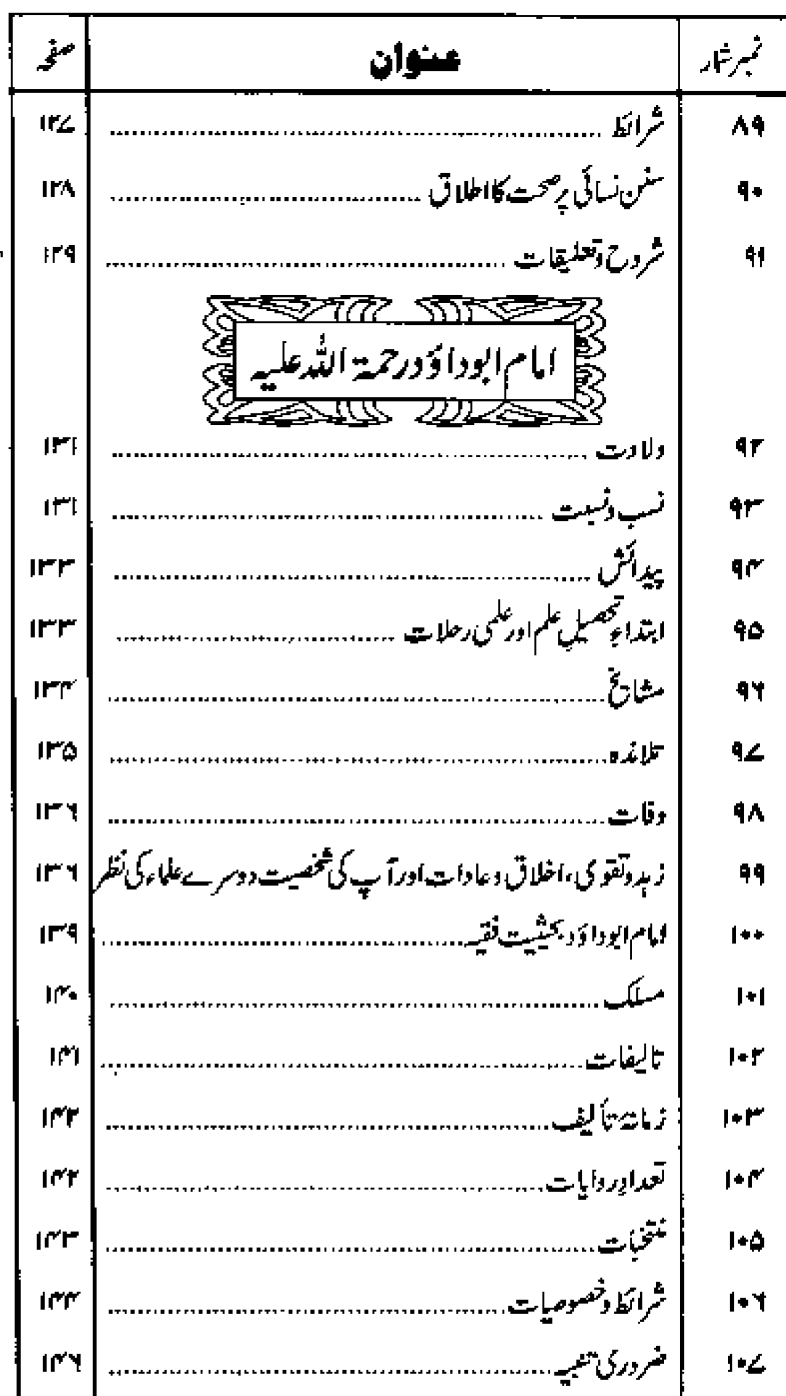 نمبر شمار عنوان صفحہ
۸۹ شرائط ۱۲۷
۹۰ سنن نسائی پر صحت کا اطلاق ۱۲۸
۹۱ شروح و تعلیقات ۱۲۹
امام ابوداؤد رحمۃ اللہ علیہ
۹۲ ولادت ۱۳۱
۹۳ نسب و نسبت ۱۳۱
۹۴ پیدائش ۱۳۳
۹۵ ابتداءِ تحصیلِ علم اور علمی رحلات ۱۳۳
۹۶ مشائخ ۱۳۴
۹۷ تلامذہ ۱۳۵
۹۸ وفات ۱۳۶
۹۹ زہد و تقویٰ، اخلاق و عادات اور آپ کی شخصیت دوسرے علماء کی نظر ۱۳۶
۱۰۰ امام ابوداؤد بحیثیت فقیہ ۱۳۹
۱۰۱ مسلک ۱۴۰
۱۰۲ تالیفات ۱۴۱
۱۰۳ زمانۂ تألیف ۱۴۲
۱۰۴ تعدادِ روایات ۱۴۲
۱۰۵ منتخبات ۱۴۳
۱۰۶ شرائط و خصوصیات ۱۴۴
۱۰۷ ضروری تنبیہ ۱۴۶